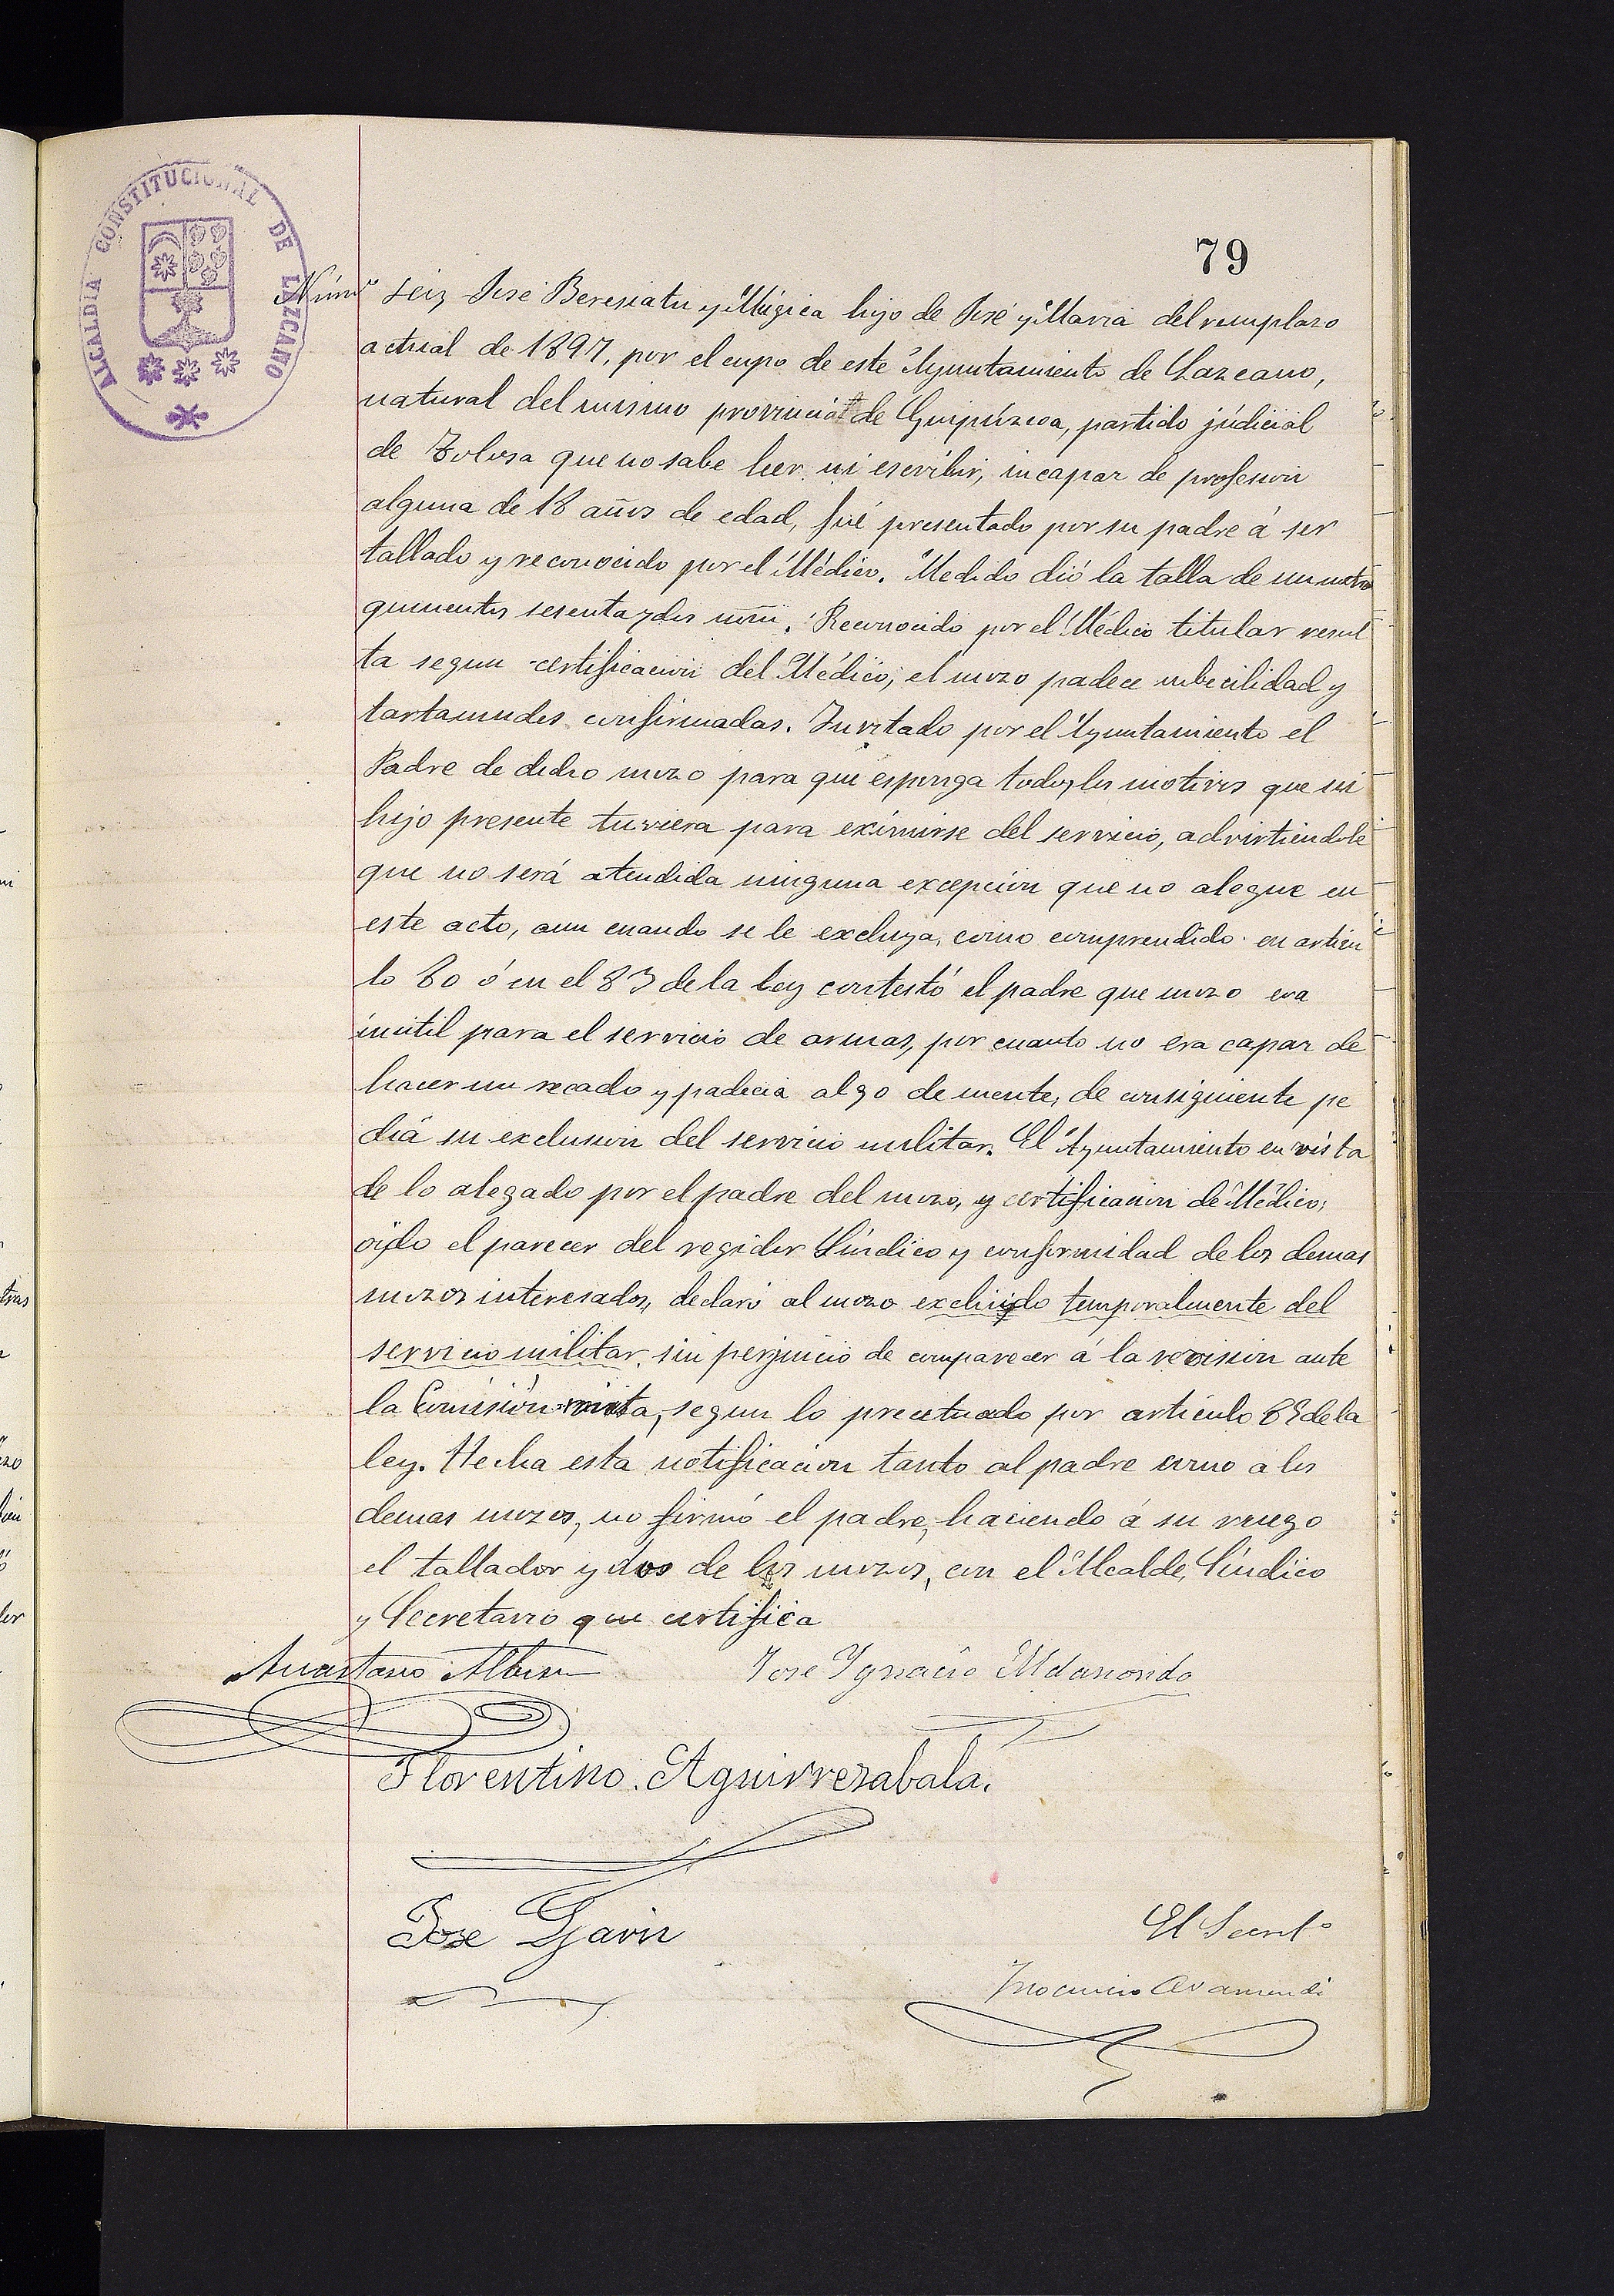 79
ALCALDIA CONSTITUCIONAL DE LAZCANO
Númº seis José Beresiatu y Múgica hijo de José y Maria del remplazo
actual de 1897, por el cupo de este Ayuntamiento de Lazcano,
natural del mismo provincia de Guipúzcoa, partido júdicial
de Tolosa que no sabe leer ni escribir, incapaz de profesion
alguna de 18 años de edad, fué presentado por su padre á ser
tallado y reconocido por el Médico. Medido dió la talla de un metro
quinientos sesenta y dos mm. Reconocido por el Médico titular resul
ta segun certificacion del Médico, el mozo padece imbecilidad y
tartamudes confirmadas. Invitado por el Ayuntamiento el
Padre de dicho mozo para que esponga todos los motivos que su
hijo presente tuviera para eximirse del servicio, advirtiendole
que no será atendida ninguna excepcion que no alegue en
este acto, aun cuando se le excluya, como comprendido en articu
lo 80 ó en el 83 de la ley contestó el padre que mozo era
inútil para el servicio de armas, por cuanto no era capaz de
hacer un recado y padecia algo de mente, de consiguiente pe
dia su exclusion del servicio militar. El Ayuntamiento en vista
de lo alegado por el padre del mozo, y certificacion de Médico,
oido el parecer del regidor Síndico y conformidad de los demas
mozos interesados, declaró al mozo excluido temporalmente del
servicio militar, sin perjuicio de comparecer á la revision ante
la Comisión mista, segun lo preceptuado por artículo de la
ley. Hecha esta notificacion tanto al padre como a los
demas mozos, no firmó el padre, haciendo á su ruego
el tallador y dos de los mozos, con el Alcalde, Síndico
y Secretario que certifica
Anastasio Albisu José Ygnacio Aldanondo
Florentino Aguirrezabala.
Jose Garin
El Secretº
Inocencio Aramendi